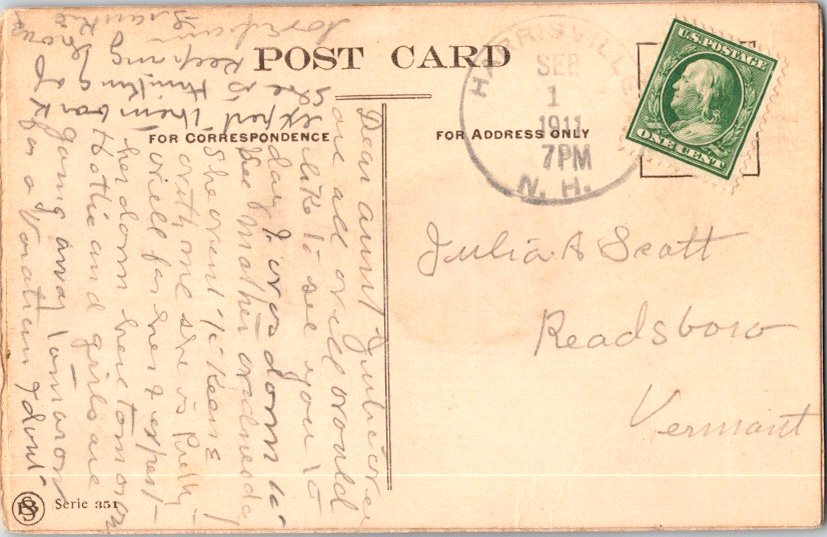 POST CARD
FOR CORRESPONDENCE
FOR ADDRESS ONLY
HARRISVILLE
SEP
1
1911
7PM
N. H.
U.S. POSTAGE
ONE CENT
Julia A Scott
Readsboro
Vermont
Dear aunt Julia we
are all well would
like to see you to
day I was down to
see mother wednesday
She went to Keene
with me she is pretty
well for her I expect
her down here tomorow
Hattie and girls are
going away tomorow
for a vacation I dont
expect them back
she is keeping house
Serie 351